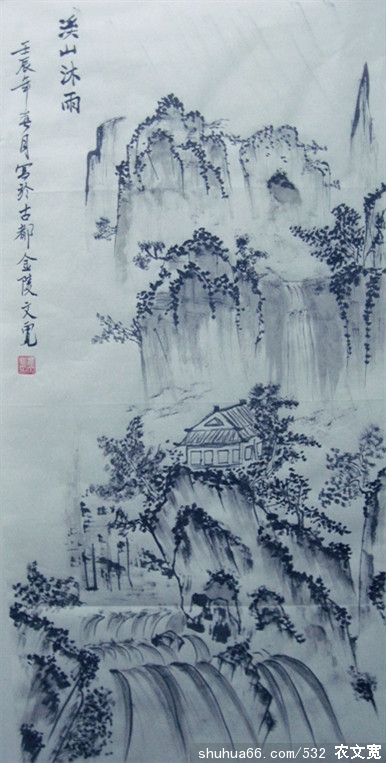 溪山沐雨
壬辰年春月写於古都金陵文寬
shuhua66.com/532 农文宽